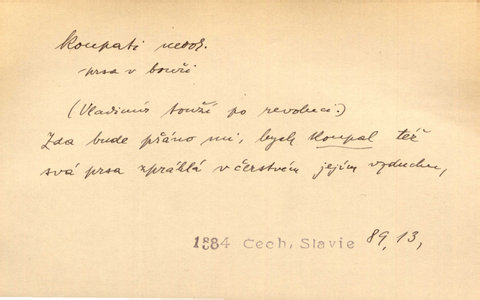 Koupati nedok.
prsa v bouři
(Vladimír touží po revoluci.)
Zda bude přáno mi, bych koupal též
svá prsa zprahlá v čerstvém jejím vzduchu,
1884 Cech, Slavie 89, 13,